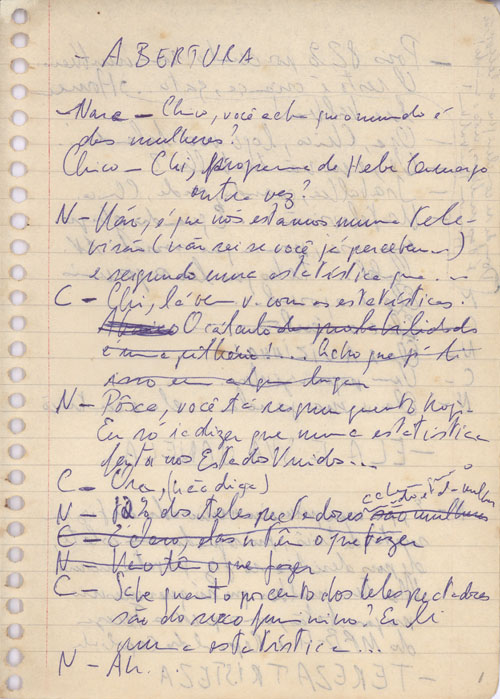 - ABERTURA
- Nara - Chico, você acha que o mundo é
das mulheres?
Chico - Chi, programa de Hebe Camargo
outra vez?
N - Não, é que nós estamos numa tele-
visão (não sei se você já percebeu...)
e segundo uma estatística que...
C - Chi, lá vem v. com as estatísticas.
O cálculo de probabilidades
é uma pilhéria!... Acho que já li
isso em algum lugar
N - Pôxa, você tá
Eu só ia dizer que numa estatística
feita nos Estados Unidos...
C - (não diga)
N - 82% dos telespectadores são mulheres
C - É claro, elas ñ têm o que fazer
N - Não tê o que fazer
C - Sabe quanto por cento dos telespectadores
são do sexo feminino? Eu li
numa estatística...
N - Ah..
- TEREZA TRISTEZA
1